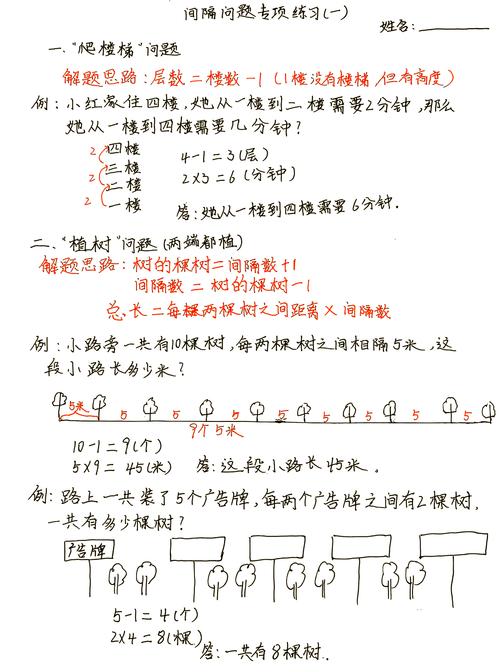 间隔问题专项练习(一)
姓名:
一、"爬楼梯"问题
解题思路:层数=楼数-1(1楼没有楼梯,但有高度)
例:小红家住四楼,她从一楼到二楼需要2分钟,那么
她从一楼到四楼需要几分钟?
2 四楼
三楼
2 二楼
2 一楼
4-1=3(层)
2×3=6(分钟)
答:她从一楼到四楼需要6分钟.
二、"植树"问题(两端都植)
解题思路:树的棵树=间隔数+1
间隔数=树的棵树-1
总长=每棵两棵树之间距离×间隔数
例:小路旁一共有10棵树,每两棵树之间相隔5米,这
段小路长多少米?
5米 5 5 5 5 5 5 5 5
9个5米
10-1=9(个)
5×9=45(米) 答:这段小路长45米.
例:路上一共装了5个广告牌,每两个广告牌之间有2棵树,
一共有多少棵树?
广告牌
5-1=4(个)
2×4=8(棵)
答:一共有8棵树.